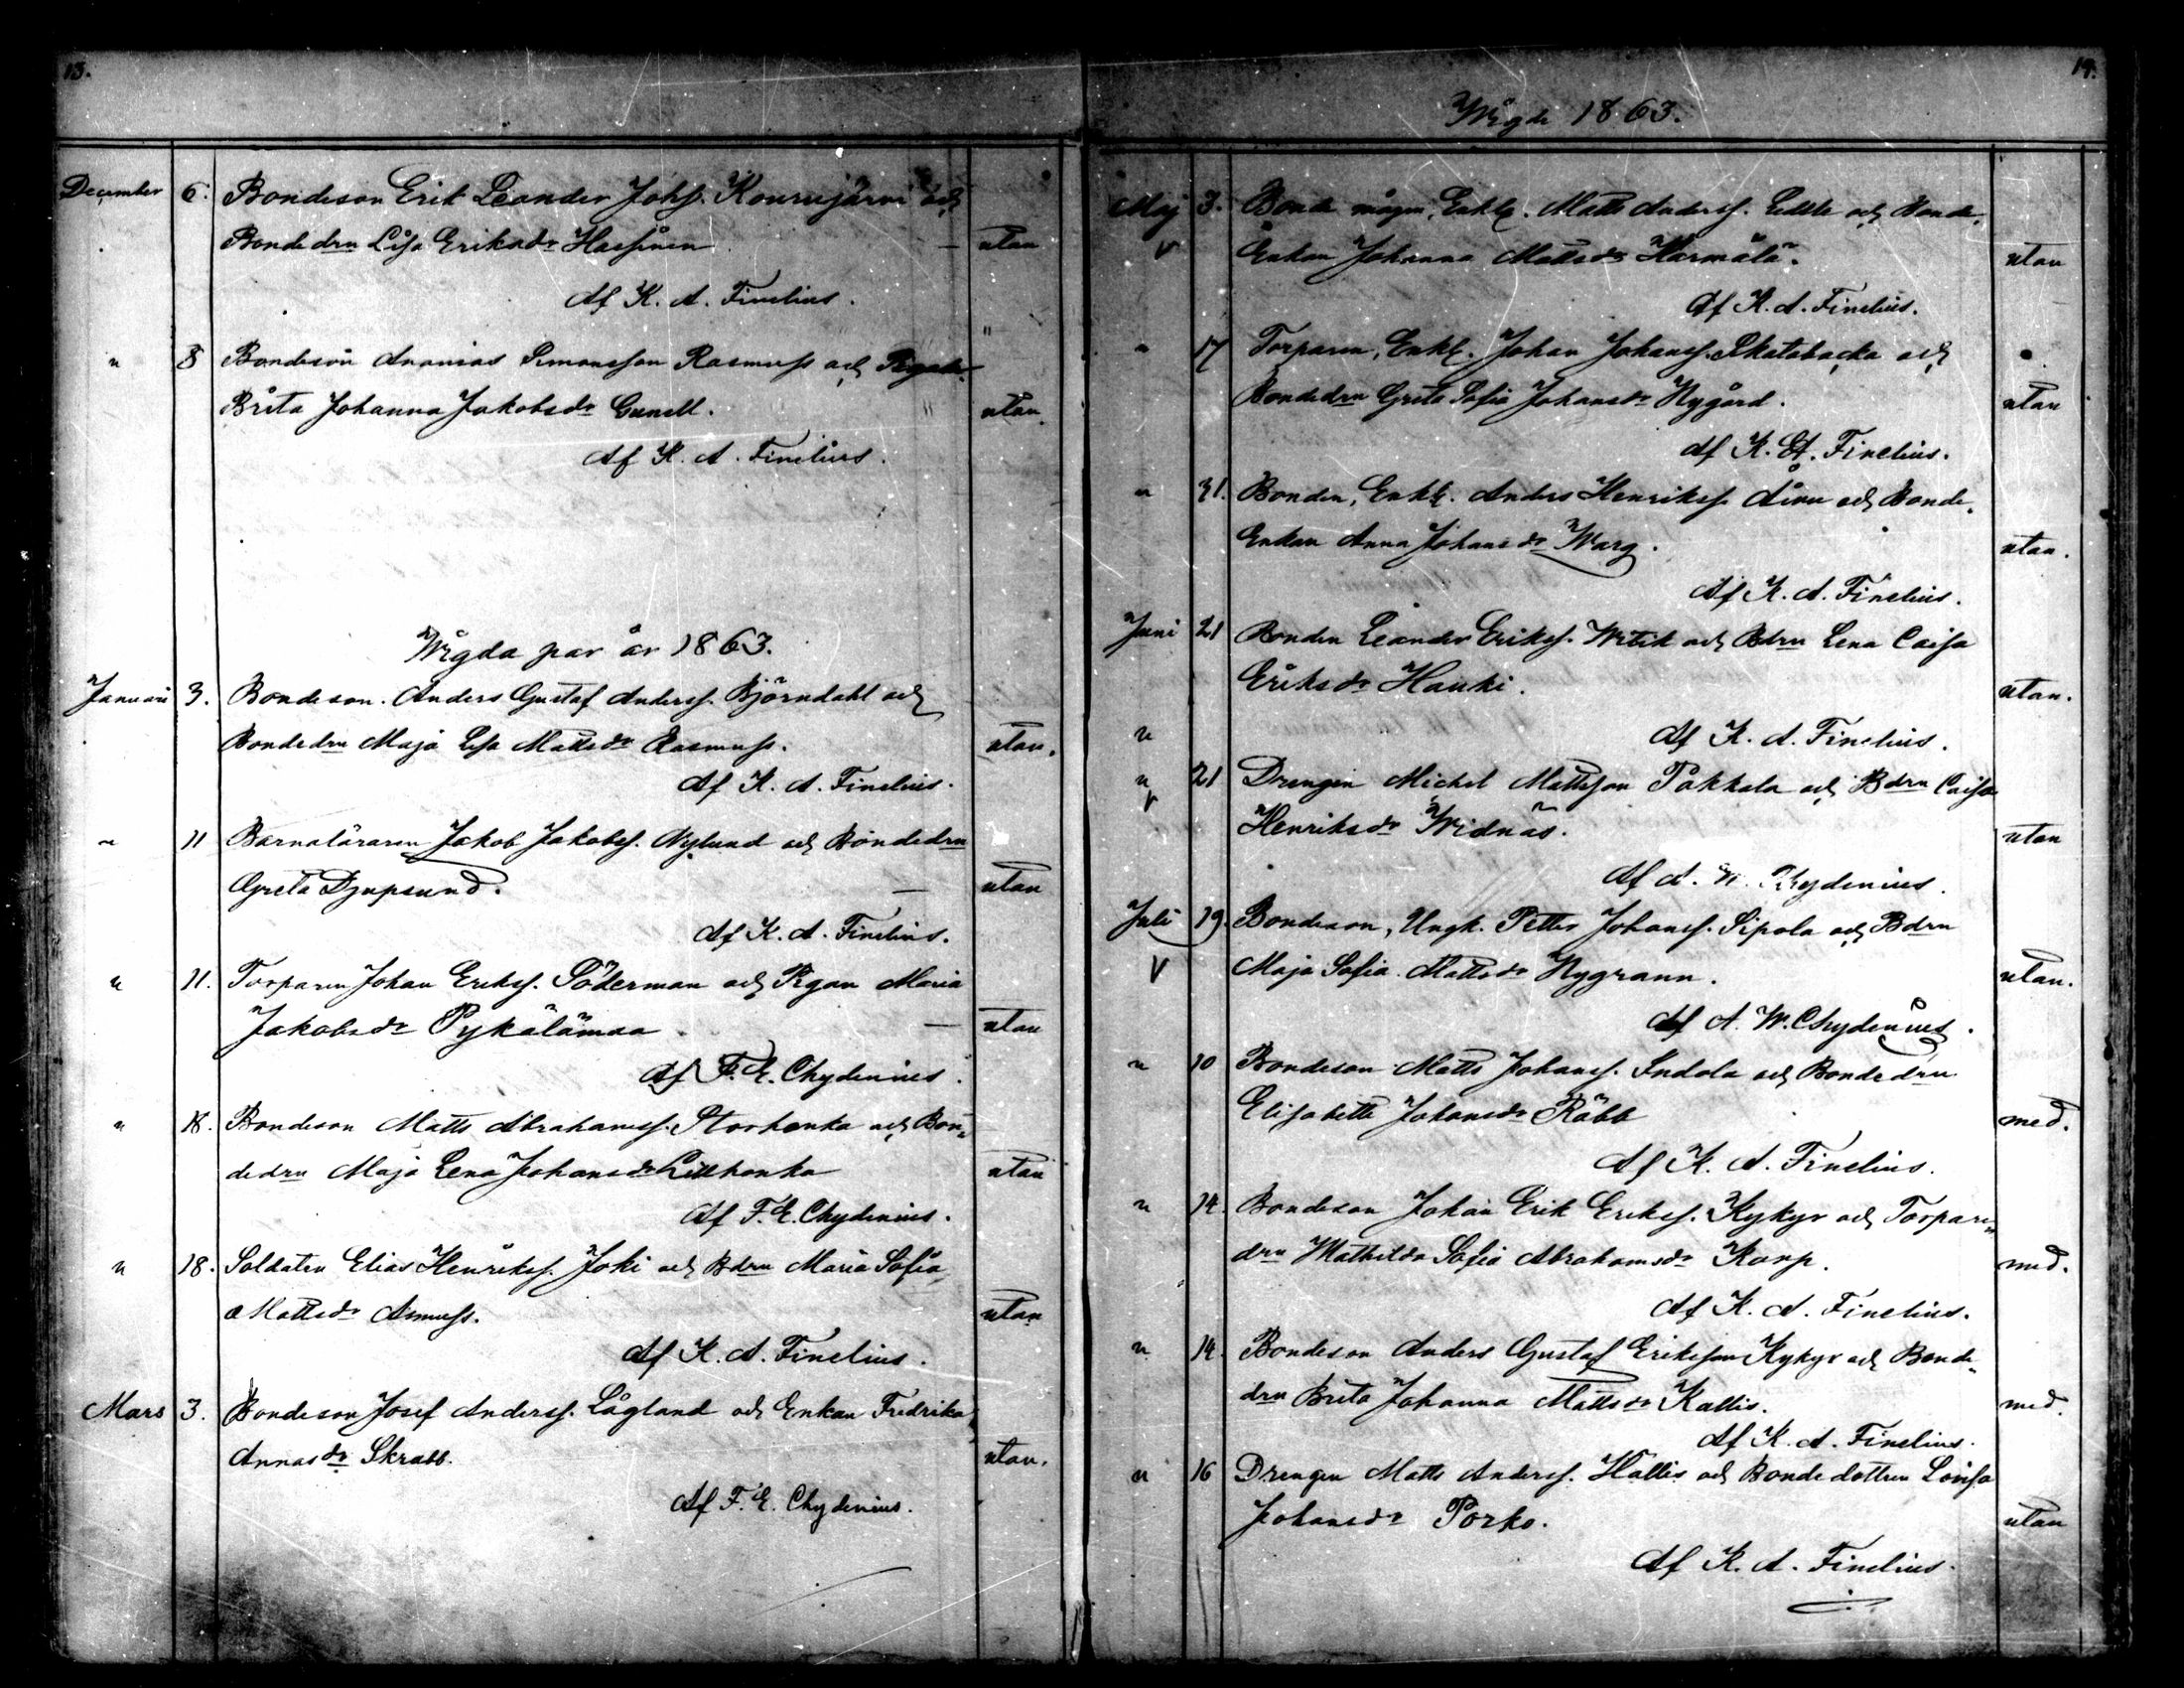 13.
December 6. Bondeson Erik Leander Johss. Kourujärvi och
Bondedrn Lisa Eriksdr Hassinen — utan
Af K. A. Finelius.
" 8 Bondeson Ananias Simonsson Rasmuss och Pigan
Brita Johanna Jakobsdr Gunell. utan.
Af K. A. Finelius.
Wigda par år 1863.
Januari 3. Bondeson. Anders Gustaf Anderss. Björndahl och
Bondedrn Maja Lisa Mattsdr Rasmuss. utan.
Af K. A. Finelius.
" 11 Barnaläraren Jakob Jakobss. Nylund och Bondedrn
Greta Djupsund. — utan
Af K. A. Finelius.
" 11. Torparen Johan Erikss. Söderman och Pigan Maria
Jakobsdr Pykälämaa. — utan
Af F. E. Chydenius.
" 18. Bondeson Matts Abrahamss. Storhonka och Bon-
dedrn Maja Lena Johansdr Lillhonka utan
Af F. E. Chydenius.
" 18. Soldaten Elias Henrikss. Joki och Bdrn Maria Sofia
Mattsdr Asmuss. utan
Af K. A. Finelius.
Mars 3. Bondeson Josef Anderss. Lågland och Enkan Fredrika
Annasdr Skrabb. utan.
Af F. E. Chydenius.
14.
Wigde 1863.
Maj 3. Bonde mågen, Enkl. Matts Anderss. och Bonde-
Enkan Johanna Mattsdr Härmälä. utan
Af K. A. Finelius.
" 17 Torparen, Enkl. Johan Johanss. Skatabacka och
Bondedrn Greta Sofia Johansdr Nygård. utan
Af K. A. Finelius.
" 31. Bonden, Enkl. Anders Henrikss. och Bonde-
Enkan Anna Johansdr Warg. utan.
Af K. A. Finelius.
Juni 21 Bonden Leander Erikss. Witik och Bdrn Lena Caisa
Eriksdr Hauki. utan.
" Af K. A. Finelius.
" 21 Drengen Michel Mattsson Pakkala och Bdrn Caisa
Henriksdr Widnäs. utan
Af A. W. Chydenius.
Juli 19. Bondeson, Ungk. Petter Johanss. Sipola och Bdrn
Maja Sofia Mattsdr Nygrann. utan.
Af A. W. Chydenius.
" 10 Bondeson Matts Johanss. Indola och Bondedrn
Elisabetta Johansdr Räbb med.
Af K. A. Finelius.
" 14. Bondeson Johan Erik Erikss. Kykyr och Torpare-
drn Mathilda Sofia Abrahamsdr Karp. med.
Af K. A. Finelius.
" 14. Bondeson Anders Gustaf Eriksson Kykyr och Bonde-
drn Brita Johanna Mattsdr Kallis. med.
Af K. A. Finelius.
" 16 Drengen Matts Anderss. Hallis och Bondedottren Lovisa
Johansdr Porko. utan
Af K. A. Finelius.